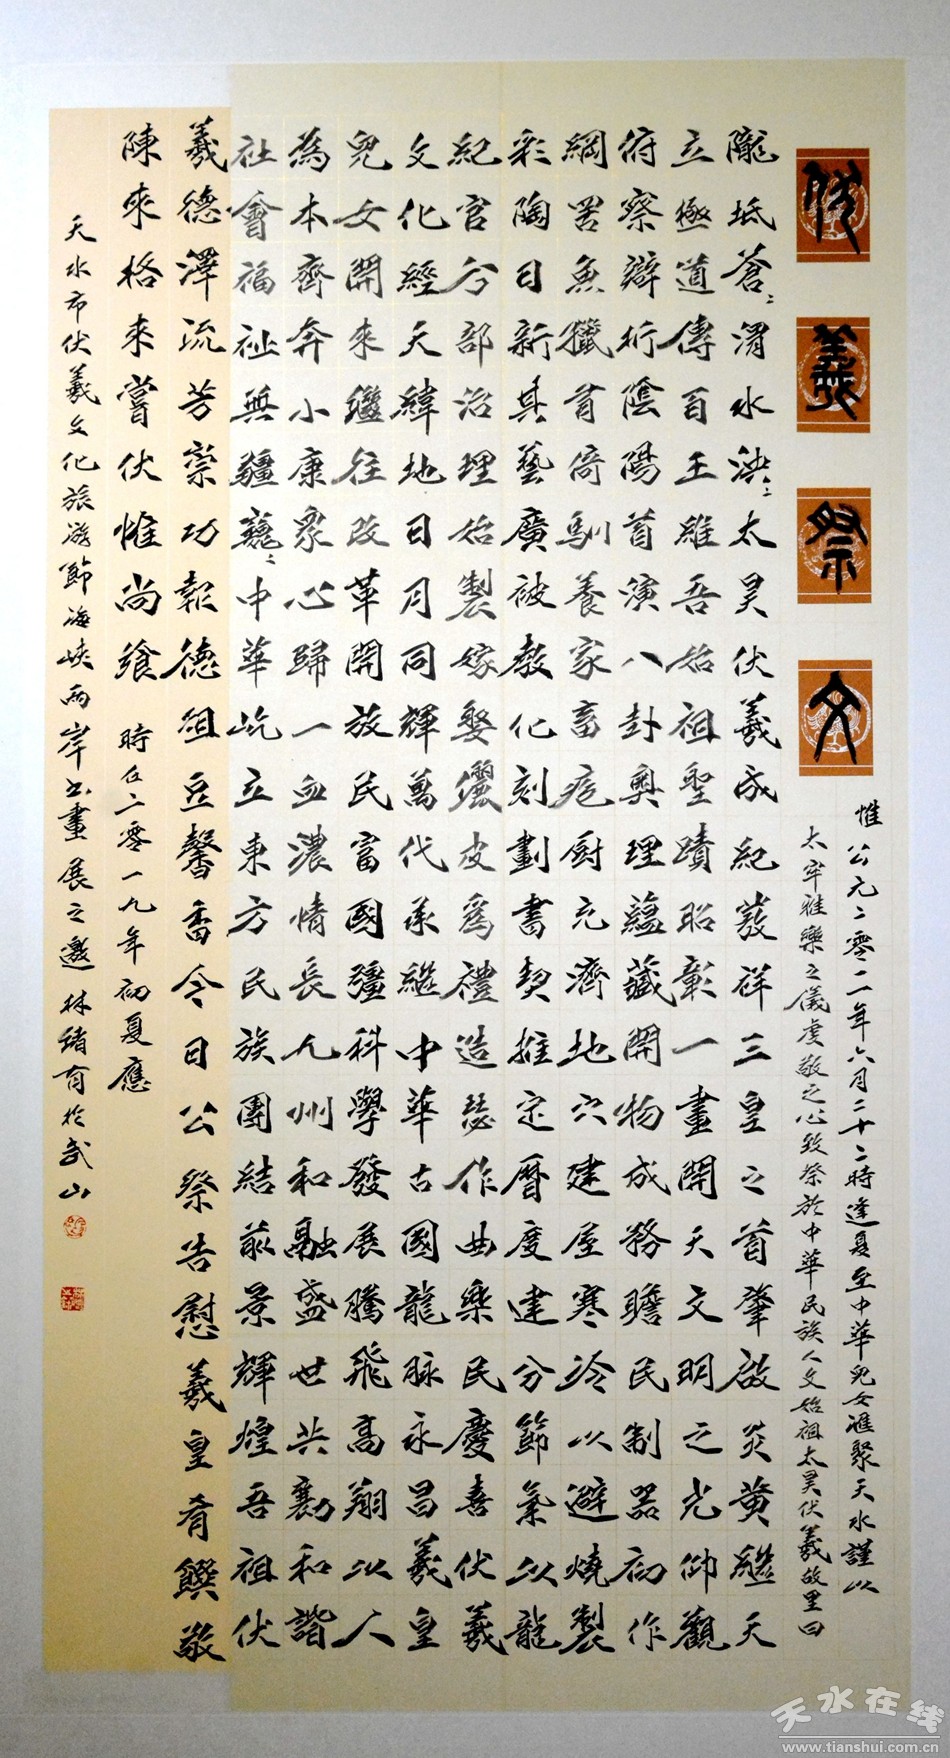 伏羲祭文
惟公元二零一一年六月二十二時逢夏至中華兒女滙聚天水謹以
太牢雅樂之儀虔敬之心致祭於中華民族人文始祖太昊伏羲故里曰
隴坻蒼〻渭水泱〻太昊伏羲成紀發祥三皇之首肇啟炎黄繼天
立極道傳百王維吾始祖聖蹟昭彰一畫開天文明之光仰觀
俯察辯析陰陽首演八卦奥理蘊藏開物成務瞻民制器初作
網罟魚獵首倚馴養家畜庖厨充濟地穴建屋寒冷以避燒製
彩陶日新其藝廣被教化刻劃書契推定曆度建分節氣以龍
紀官分部治理始製嫁娶儷皮爲禮造瑟作曲樂民慶喜伏羲
文化經天緯地日月同輝萬代承繼中華古國龍脉永昌羲皇
兒女開來繼往改革開放民富國彊科學發展騰飛高翔以人
為本齊奔小康衆心歸一血濃情長九州和融盛世共襄和諧
社會福祉無疆巍〻中華屹立東方民族團結前景輝煌吾祖伏
羲德澤流芳崇功報德俎豆馨香今日公祭告慰羲皇肴饌敬
陳來格來嘗伏惟尚飨 時在二零一九年初夏應
天水市伏羲文化旅游節海峽兩岸書畫展之邀 林绪有於武山
天水在线
www.tianshui.com.cn